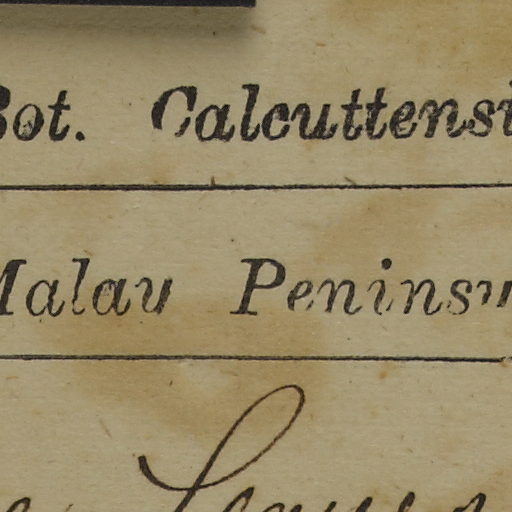 Bot. Calcuttensi
Malay Peninsu